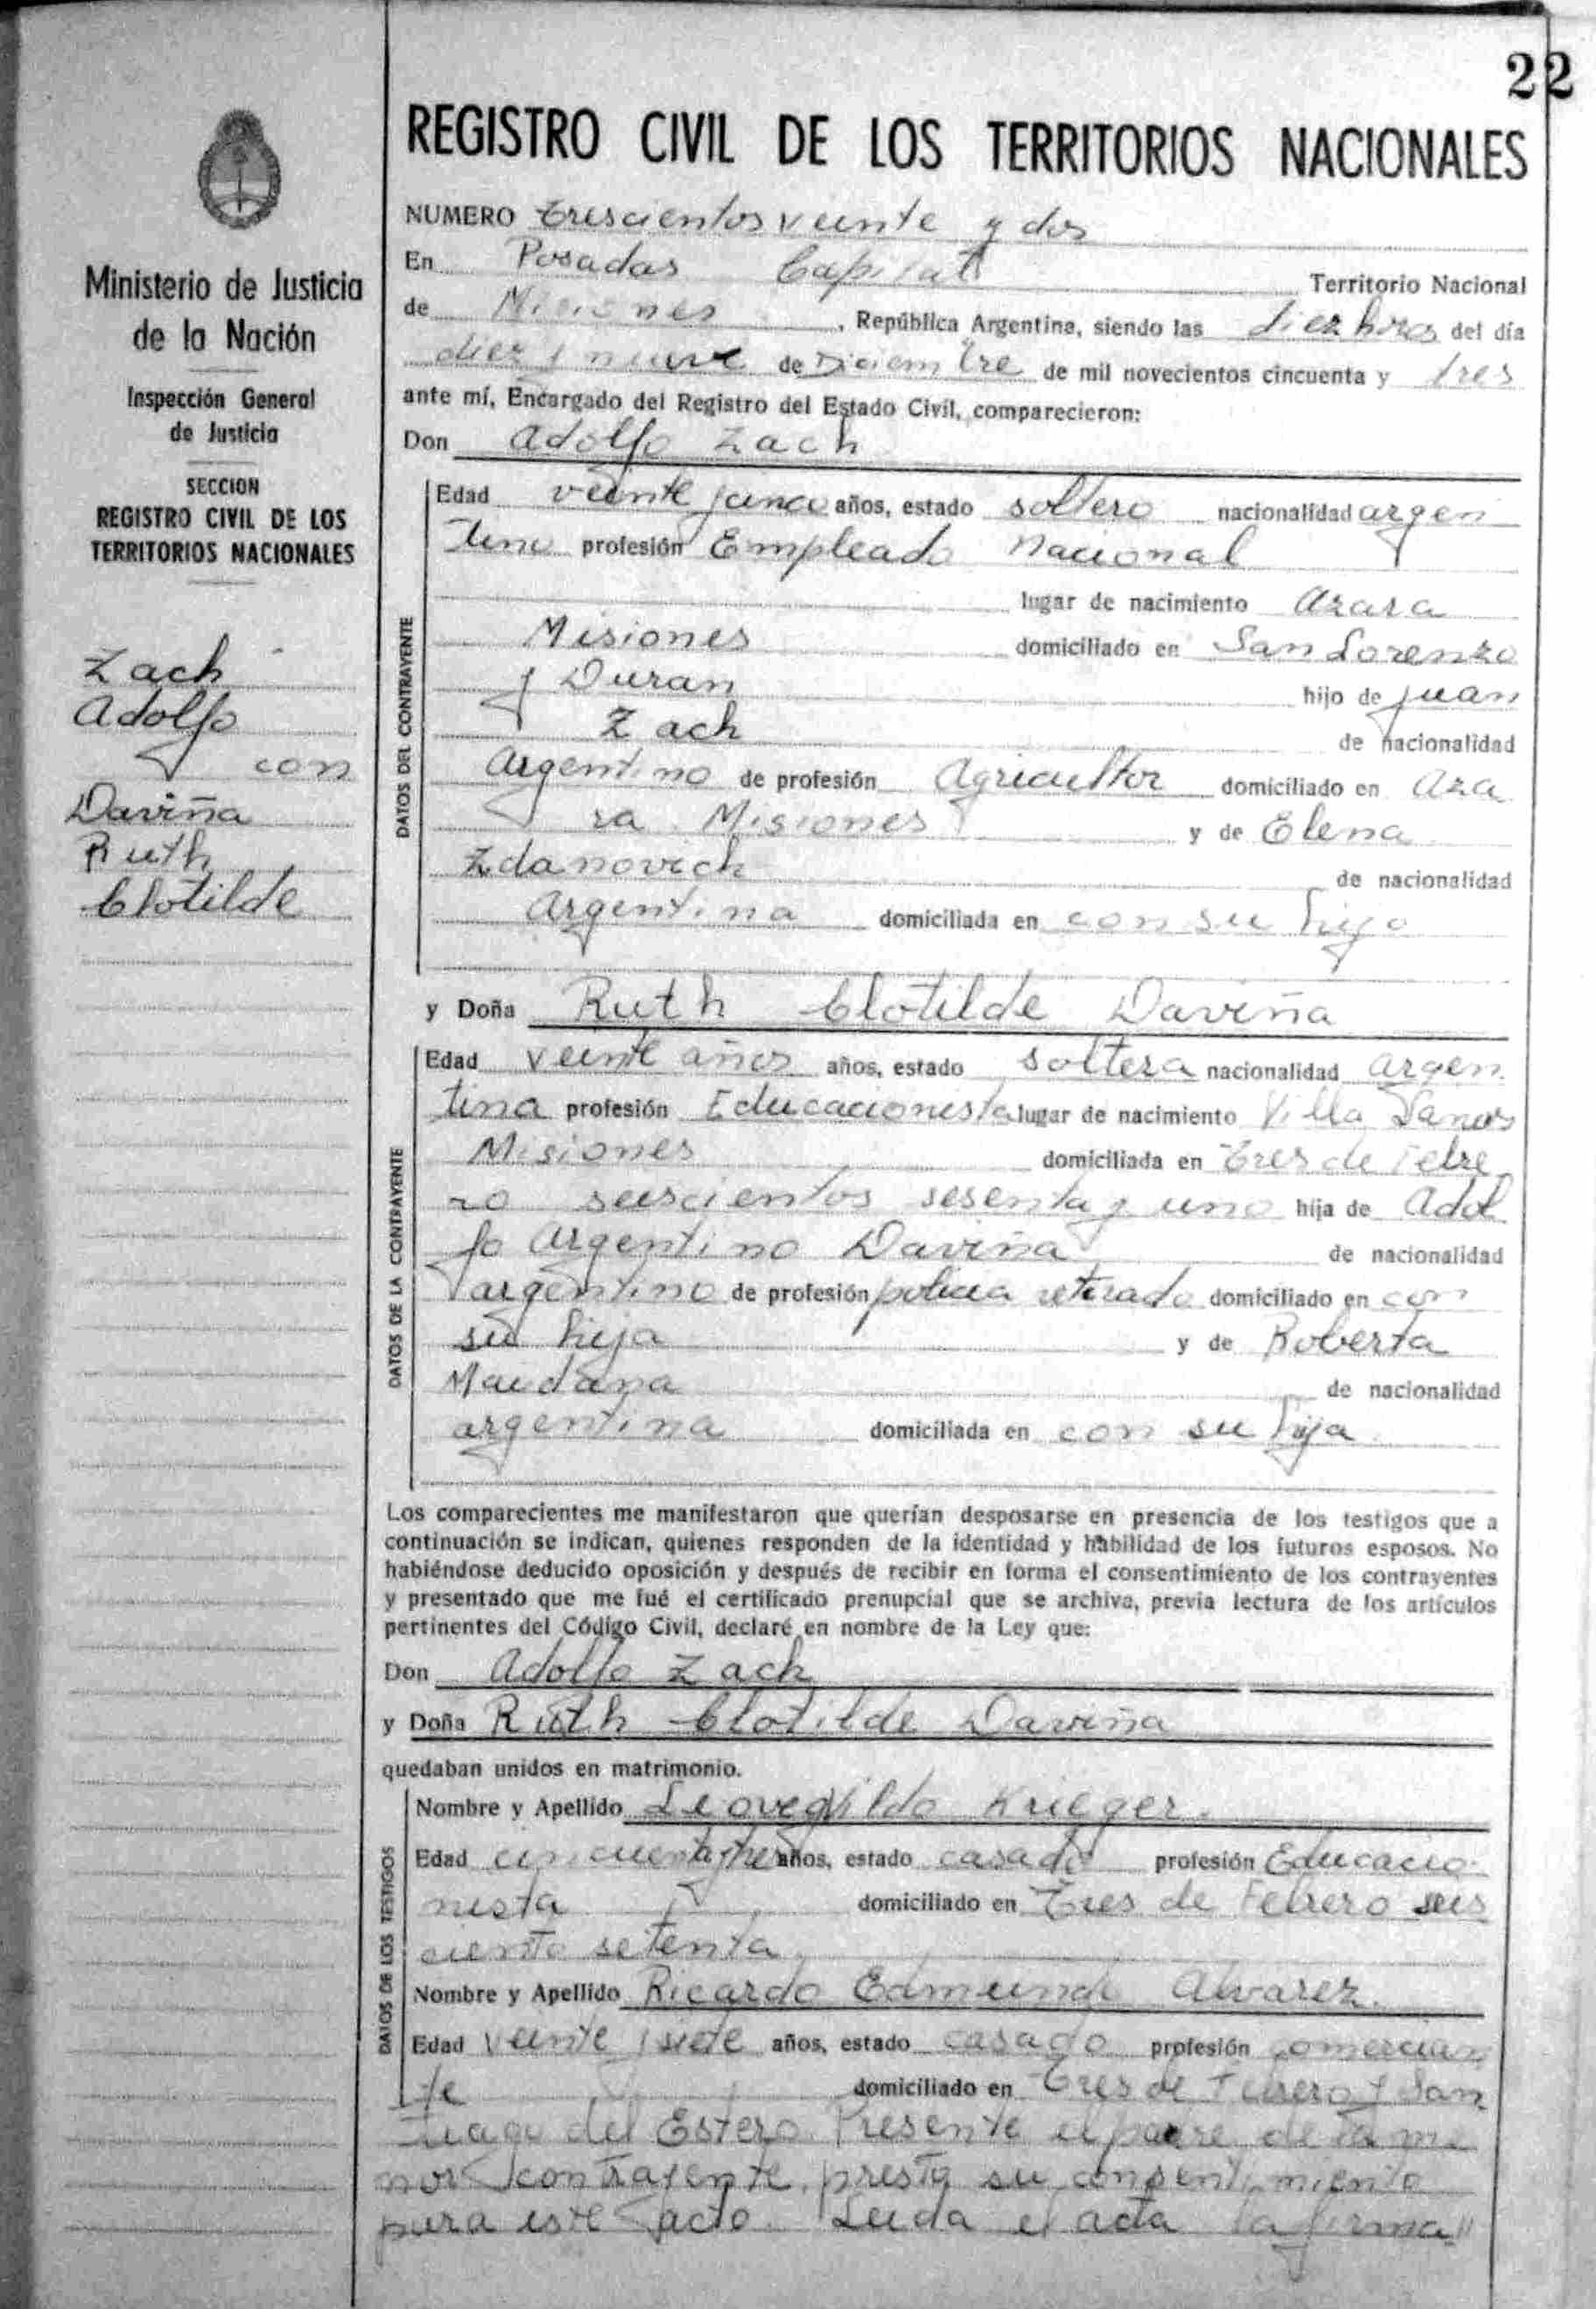 22
REGISTRO CIVIL DE LOS TERRITORIOS NACIONALES
Ministerio de Justicia
de la Nación
Inspección General
de Justicia
SECCION
REGISTRO CIVIL DE LOS
TERRITORIOS NACIONALES
Zach
Adolfo
con
Daviña
Ruth
Clotilde
NUMERO trescientos veinte y dos
En Posadas Capital Territorio Nacional
de Misiones, República Argentina, siendo las diez horas del día
diez y nueve de Diciembre de mil novecientos cincuenta y tres
ante mí, Encargado del Registro del Estado Civil, comparecieron:
Don Adolfo Zach
DATOS DEL CONTRAYENTE
Edad veinte y cinco años, estado soltero nacionalidad argen
tino profesión Empleado Nacional
lugar de nacimiento Azara
Misiones domiciliado en San Lorenzo
y Duran hijo de Juan
Zach de nacionalidad
Argentino de profesión Agricultor domiciliado en Aza
ra Misiones y de Elena
Zdanovich de nacionalidad
Argentina domiciliada en con su hijo
y Doña Ruth Clotilde Daviña
DATOS DE LA CONTRAYENTE
Edad veinte años años, estado soltera nacionalidad argen
tina profesión Educacionista lugar de nacimiento Villa
Misiones domiciliada en Tres de Febre
ro seiscientos sesenta y uno hija de Adol
fo Argentino Daviña de nacionalidad
argentino de profesión policia retirado domiciliado en con
su hija y de Roberta
Maidana de nacionalidad
argentina domiciliada en con su hija
Los comparecientes me manifestaron que querían desposarse en presencia de los testigos que a
continuación se indican, quienes responden de la identidad y habilidad de los futuros esposos. No
habiéndose deducido oposición y después de recibir en forma el consentimiento de los contrayentes
y presentado que me fué el certificado prenupcial que se archiva, previa lectura de los artículos
pertinentes del Código Civil, declaré en nombre de la Ley que:
Don Adolfo Zach
y Doña Ruth Clotilde Daviña
quedaban unidos en matrimonio.
DATOS DE LOS TESTIGOS
Nombre y Apellido Leovegildo Krieger.
Edad cincuenta y tres años, estado casado profesión Educacio
nista domiciliado en Tres de Febrero seis
ciento setenta
Nombre y Apellido Ricardo Edmundo Alvarez.
Edad veinte y siete años, estado casado profesión comercian
te domiciliado en Tres de Febrero y San
tiago del Estero. Presente el padre de la me
nor contrayente, presta su consentimiento
para este acto. Leida el acta la firma